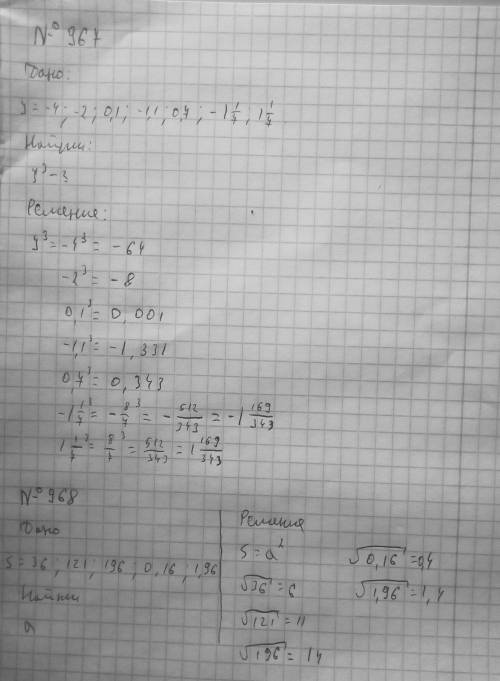 № 967
Дано:
y = -4; -2; 0,1; -1,1; 0,7; -1 1/7; 1 1/7
Найти:
y³ - ?
Решение:
y³ = -4³ = -64
-2³ = -8
0,1³ = 0,001
-1,1³ = -1,331
0,7³ = 0,343
-1 1/7³ = -8/7³ = -512/343 = -1 169/343
1 1/7³ = 8/7³ = 512/343 = 1 169/343
№ 968
Дано
S = 36; 121; 196; 0,16; 1,96
Найти
a
Решение
S = a²
√36 = 6
√121 = 11
√196 = 14
√0,16 = 0,4
√1,96 = 1,4